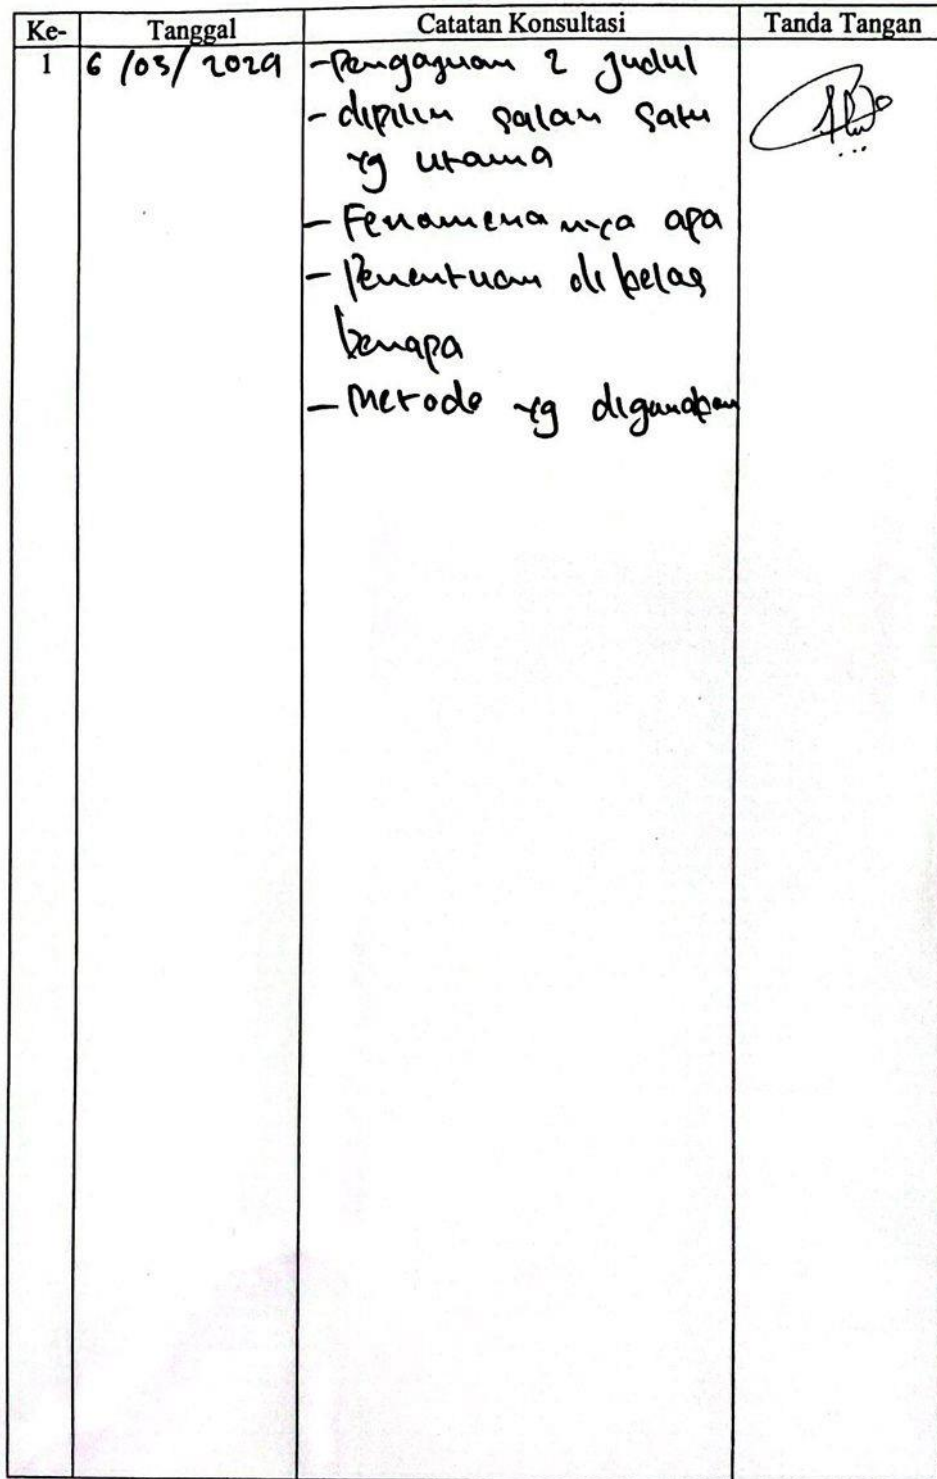 Ke- Tanggal Catatan Konsultasi Tanda Tangan
1 6 /03/ 2024 - Pengajuan 2 judul
- dipilih salah satu
yg utama
- Fenomena nya apa
- Penentuan di kelas
berapa
- Metode yg digunakan